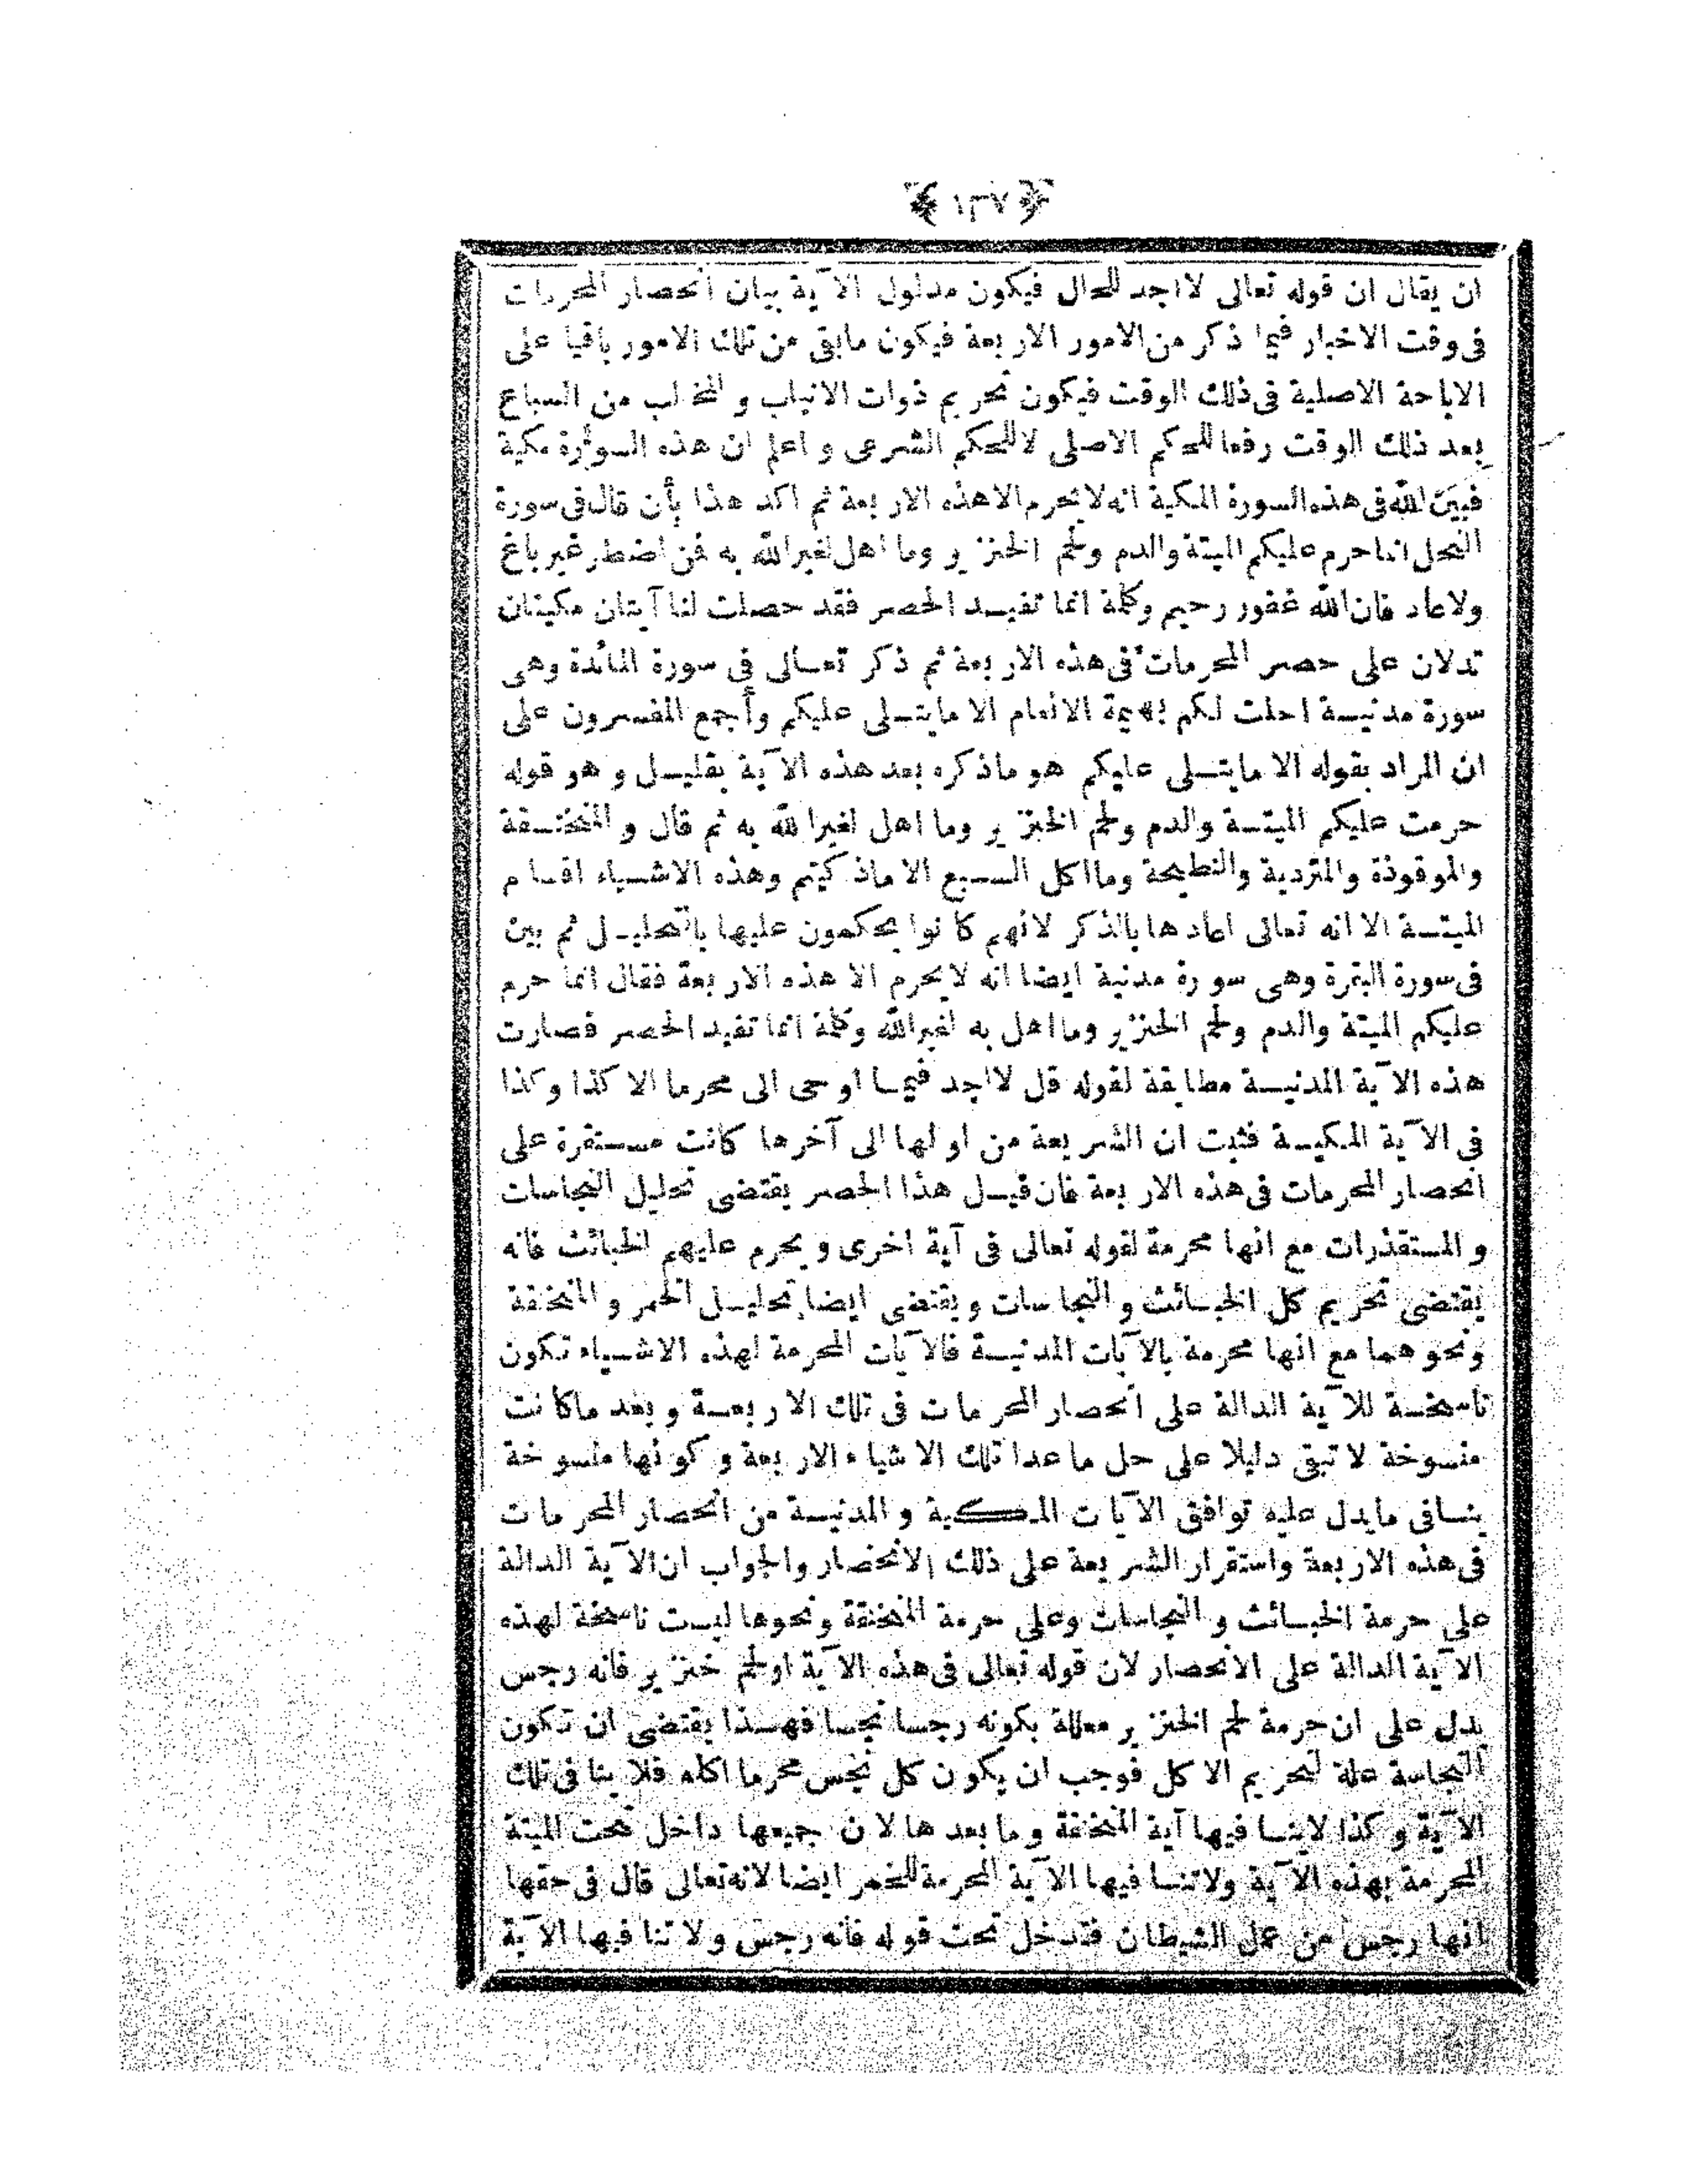 ١٣٧
ان يقال ان قوله تعالى لااجد للحال فيكون مدلول الآية بيان انحصار المحرمات
فى وقت الاخبار فيما ذكر من الامور الاربعة فيكون مابقى من تلك الامور باقيا على
الاباحة الاصلية فى ذلك الوقت فيكون تحريم ذوات الانياب والمخالب من السباع
بعد ذلك الوقت رفعا للحكم الاصلى لاللحكم الشرعى و اعلم ان هذه السورة مكية
فبين الله فى هذه السورة المكية انه لايحرم الاهذه الاربعة ثم اكد هذا بأن قال فى سورة
النحل انما حرم عليكم الميتة والدم ولحم الخنزير وما اهل لغير الله به فمن اضطر غير باغ
ولاعاد فان الله غفور رحيم وكلمة انما تفيد الحصر فقد حصلت لنا آيتان مكيتان
تدلان على حصر المحرمات فى هذه الاربعة ثم ذكر تعالى فى سورة المائدة وهى
سورة مدنية احلت لكم بهيمة الانعام الا مايتلى عليكم وأجمع المفسرون على
ان المراد بقوله الا مايتلى عليكم هو ماذكره بعد هذه الآية بقليل و هو قوله
حرمت عليكم الميتة والدم ولحم الخنزير وما اهل لغير الله به ثم قال و المنخنقة
والموقوذة والمتردية والنطيحة ومااكل السبع الا ماذكيتم وهذه الاشياء اقسام
الميتة الا انه تعالى اعادها بالذكر لانهم كانوا يحكمون عليها بالتحليل ثم بين
فى سورة البقرة وهى سورة مدنية ايضا انه لايحرم الا هذه الاربعة فقال انما حرم
عليكم الميتة والدم ولحم الخنزير ومااهل به لغير الله وكلمة انما تفيد الحصر فصارت
هذه الآية المدنية مطابقة لقوله قل لااجد فيما اوحى الى محرما الا كذا وكذا
فى الآية المكية فثبت ان الشريعة من اولها الى آخرها كانت مستقرة على
انحصار المحرمات فى هذه الاربعة فان قيل هذا الحصر يقتضى تحليل النجاسات
و المستقذرات مع انها محرمة لقوله تعالى فى آية اخرى و يحرم عليهم الخبائث فانه
يقتضى تحريم كل الخبائث و النجاسات ويقتضى ايضا تحليل الخمر و المنخنقة
ونحوهما مع انها محرمة بالآيات المدنية فالآيات المحرمة لهذه الاشياء تكون
ناسخة للآية الدالة على انحصار المحرمات فى تلك الاربعة و بعد ماكانت
منسوخة لاتبقى دليلا على حل ماعدا تلك الاشياء الاربعة وكونها منسوخة
ينافى مايدل عليه توافق الآيات المكية و المدنية من انحصار المحرمات
فى هذه الاربعة واستقرار الشريعة على ذلك الانحصار والجواب ان الآية الدالة
على حرمة الخبائث و النجاسات وعلى حرمة المنخنقة ونحوها ليست ناسخة لهذه
الآية الدالة على الانحصار لان قوله تعالى فى هذه الآية اولحم خنزير فانه رجس
يدل على ان حرمة لحم الخنزير معللة بكونه رجسا نجسا فهذا يقتضى ان تكون
النجاسة علة لتحريم الاكل فوجب ان يكون كل نجس محرما اكله فلا ينافى تلك
الآية وكذا لاينافيها آية المنخنقة ومابعدها لان جميعها داخل تحت الميتة
المحرمة بهذه الآية ولاتنافيها الآية المحرمة للخمر ايضا لانه تعالى قال فى حقها
انها رجس من عمل الشيطان فتدخل تحت قوله فانه رجس ولا تنافيها الآية